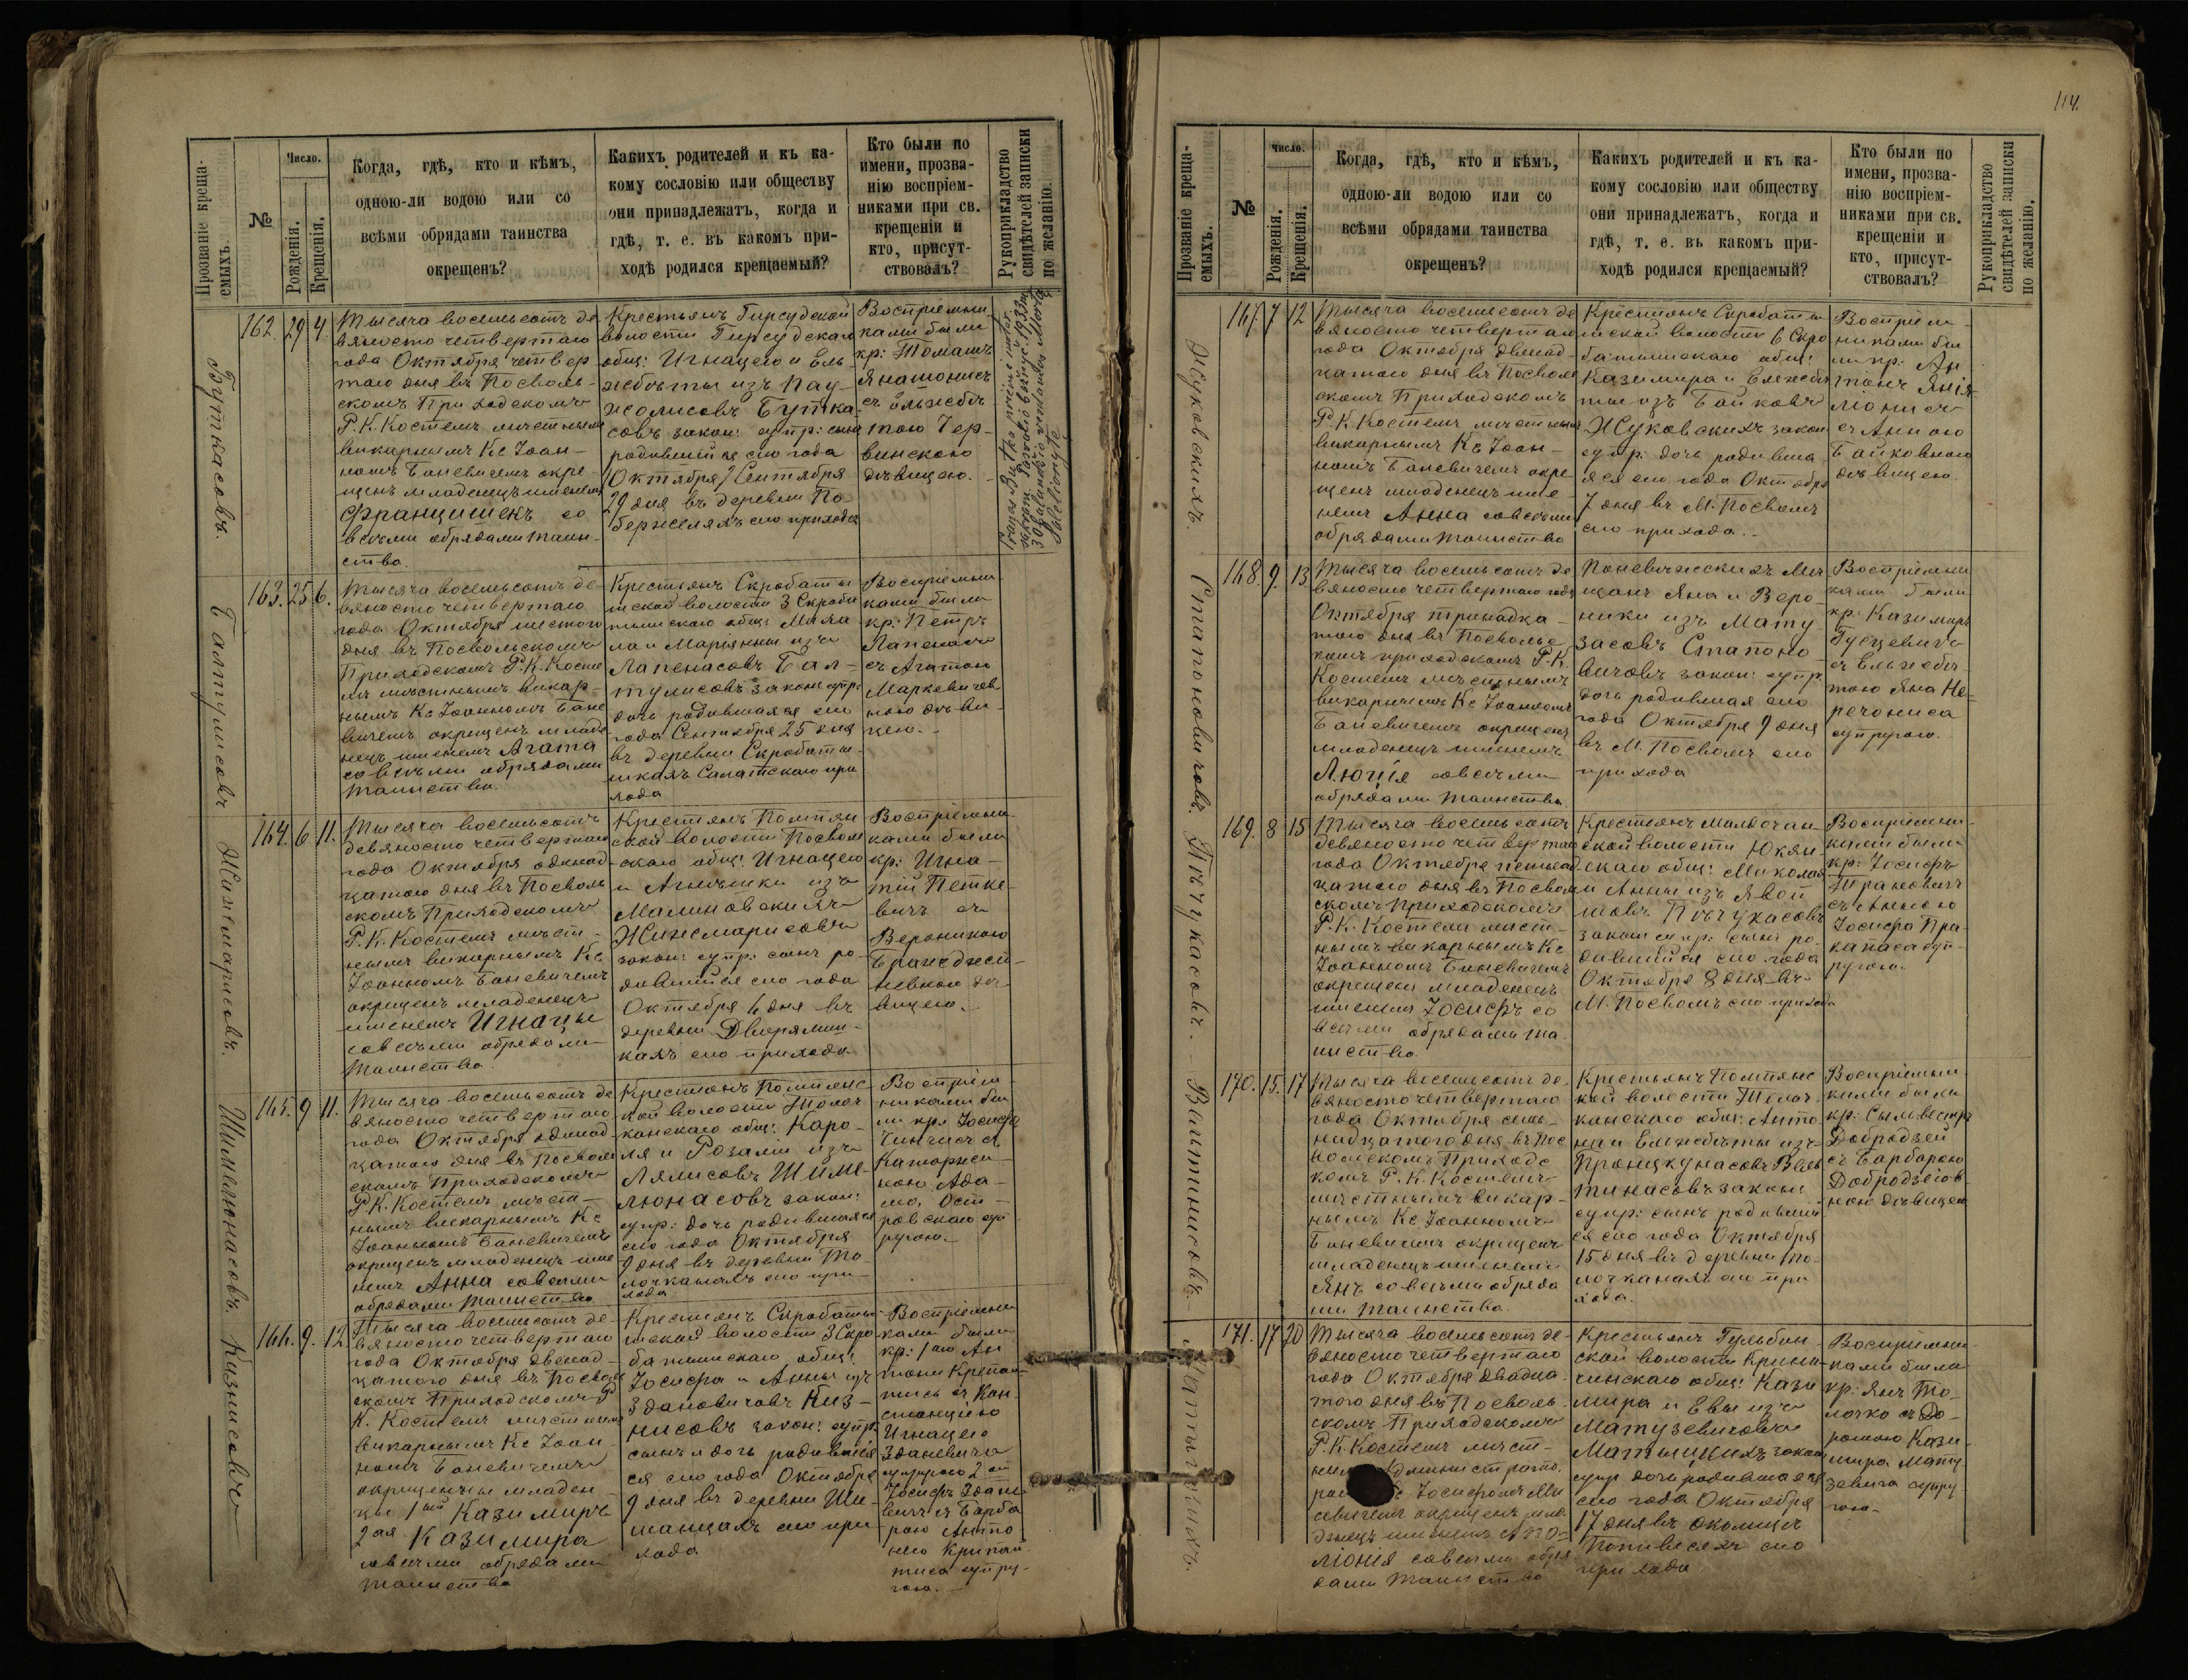 114.
Прозваніе креща-
емыхъ.
№
Число.
Рожденія.
Крещенія.
Когда, гдѣ, кто и кѣмъ,
одною-ли водою или со
всѣми обрядами таинства
окрещенъ?
Какихъ родителей и къ ка-
кому сословію или обществу
они принадлежатъ, когда и
гдѣ, т. е. въ какомъ при-
ходѣ родился крещаемый?
Кто были по
имени, прозва-
нію воспріем-
никами при св.
крещеніи и
кто, присут-
ствовалъ?
Рукоприкладство
свидѣтелей записки
по желанію.
Буткасовъ.
162. 29 4.
Тысяча восемьсотъ де
вяносто четвертаго
года Октября четвер
таго дня въ Посволь-
скомъ Приходскомъ
Р. К. Костелѣ мѣстнымъ
викарнымъ Кс Іоан-
номъ Баневичемъ окре-
щенъ младенецъ именемъ
Францишекъ со
всѣми обрядами таин-
ства.
Крестьянъ Гирсудской
волости Гирсудскаго
общ: Игнацего и Ель-
жбѣты изъ Пау-
жолисовъ Бутка-
совъ закон: супр: сынъ
родившійся сего года
Октября/Сентября
29 дня въ деревни По-
бержеляхъ сего прихода
Воспріемни-
ками были
кр: Томашъ
Янатонисъ
съ Ельжбѣ
тою Чер-
винскою
дѣвицею.
Балтулисовъ
163. 25 6.
Тысяча восемьсотъ де-
вяносто четвертаго
года Октября шестого
дня въ Посвольскомъ
Приходскомъ Р. К. Косте
лѣ мѣстнымъ викар-
нымъ Кс Іоанномъ Бане
вичемъ окрещенъ младе
нецъ именемъ Агата
со всѣми обрядами
таинства.
Крестьянъ Скробаты
шской волости 3 Скроба
тышскаго общ: Миха
ла и Марьянны изъ
Лапенасовъ Бал-
тулисовъ закон: супр:
дочь родившаяся сего
года Сентября 25 дня
въ деревни Скробаты-
шкахъ Салатскаго при
хода
Воспріемни-
ками были
кр: Петръ
Лапенасъ
съ Агатою
Маркевичев
ною дѣви-
цею.
Жижемарисовъ.
164. 6 11.
Тысяча восемьсотъ
девяносто четвертаго
года Октября одинад-
цатаго дня въ Посволь
скомъ Приходскомъ
Р. К. Костелѣ мѣст-
нымъ викарнымъ Кс
Іоанномъ Баневичемъ
окрещенъ младенецъ
именемъ Игнацы
со всѣми обрядами
таинства.
Крестьянъ Помпян
ской волости Посволь
скаго общ: Игнацего
и Агнѣшки изъ
Малиновскихъ
Жижемарисовъ
закон: супр: сынъ ро-
дившійся сего года
Октября 6 дня въ
деревни Дворямиш-
кахъ сего прихода
Воспріемни-
ками были
кр: Игна-
тій Петке-
вичъ съ
Вероникою
дѣ-
вицею.
Шимелюнасовъ.
165. 9 11.
Тысяча восемьсотъ де
вяносто четвертаго
года Октября одинад-
цатаго дня въ Посволь
скомъ Приходскомъ
Р. К. Костелѣ мѣст-
нымъ викарнымъ Кс
Іоанномъ Баневичемъ
окрещенъ младенецъ име
немъ Анна со всѣми
обрядами таинства
Крестьянъ Помпянс-
кой волости Толоч-
канскаго общ: Каро-
ля и Розаліи изъ
Лялисовъ Шиме-
люнасовъ закон:
супр: дочь родившаяся
сего года Октября
9 дня въ деревни То-
лочканахъ сего при-
хода.
Воспріем-
никами бы
ли кр: Іосифъ
съ
Катаржи-
ною Ада-
ма Ост-
ровскаго суп
ругою.
Кизнисовъ
166. 9. 12
Тысяча восемьсотъ де-
вяносто четвертаго
года Октября двенад-
цатого дня въ Посволь
скомъ Приходскомъ Р
К. Костелѣ мѣстнымъ
викарнымъ Кс Іоан-
номъ Баневичемъ
окрещены младен-
цы 1ый Казимиръ
2ая Казимира
со всѣми обрядами
таинства
Крестьянъ Скробаты-
шской волости 3 Скро
батышскаго общ:
Іосифа и Анны изъ
Здановичовъ Киз-
нисовъ закон: супр:
сынъ и дочь родившія
ся сего года Октября
9 дня въ деревни Ши-
манцахъ сего при
хода
Воспріемни
ками были
кр: 1аго Ан
тони
съ Кон-
станціею
Игнацего
Зданевича
супругою 2 ой
Іосифъ Здане
вичъ съ Барба
рою Анто
него
супру-
гою.
Прозваніе креща-
емыхъ.
№
Число.
Рожденія.
Крещенія.
Когда, гдѣ, кто и кѣмъ,
одною-ли водою или со
всѣми обрядами таинства
окрещенъ?
Какихъ родителей и къ ка-
кому сословію или обществу
они принадлежатъ, когда и
гдѣ, т. е. въ какомъ при-
ходѣ родился крещаемый?
Кто были по
имени, прозва-
нію воспріем-
никами при св.
крещеніи и
кто, присут-
ствовалъ?
Рукоприкладство
свидѣтелей записки
по желанію.
Жуковскихъ.
167. 7 12
Тысяча восемьсотъ де
вяносто четвертаго
года Октября двенад-
цатаго дня въ Посволь
скомъ Приходскомъ
Р. К. Костелѣ мѣстнымъ
викарнымъ Кс Іоан-
номъ Баневичемъ окре
щенъ младенецъ име-
немъ Анна со всѣми
обрядами таинства
Крестьянъ Скробаты
шской волости 6 Скро
батышскаго общ:
Казимира и Ельжбѣ
ты изъ Байковъ
Жуковскихъ закон
супр: дочь родивша
яся сего года Октября
7 дня въ М. Посволѣ
сего прихода.
Воспріем-
никами бы
ли кр: Ан
тонъ
съ Анною
Байковною
дѣвицею.
Стапоновичовъ.
168. 9. 13
Тысяча восемьсотъ де
вяносто четвертаго года
Октября тринадца-
таго дня въ Посвольс
комъ приходскомъ Р. К.
Костелѣ мѣстнымъ
викарнымъ Кс Іоанномъ
Баневичемъ окрещенъ
младенецъ именемъ
Люція со всѣми
обрядами таинства.
Поневѣжскихъ Мѣ
щанъ Яна и Веро-
ники изъ Мату-
засовъ Стапоно-
вичовъ закон: супр
дочь родившая сего
года Октября 9 дня
въ М. Посволѣ сего
прихода
Воспріемни
ками были
кр: Казимиръ
Гуцевичъ
съ Ельжбѣ-
тою Яна Не-
речониса
супругою.
Пѣчукасовъ.
169. 8 15
Тысяча восемьсотъ
девяносто четвертаго
года Октября пятнад-
цатаго дня въ Посволь
скомъ Приходскомъ
Р. К. Костелѣ мѣст-
нымъ викарнымъ Кс
Іоанномъ Баневичемъ
окрещенъ младенецъ
именемъ Іосифъ со
всѣми обрядами та
инства.
Крестьянъ
ской волости Юкян
скаго общ: Миколая
и Анны изъ
Пѣчукасовъ
закон супр: сынъ ро-
дившійся сего года
Октября 8 дня въ
М. Посволѣ сего прихода
Воспріемни-
ками были
кр: Іосифъ
Трановичъ
съ Анною
Іосифа Пра-
капаса суп-
ругою.
170. 15. 17
Тысяча восемьсотъ де-
вяносто четвертаго
года Октября семь-
надцатого дня въ Пос
вольскомъ Приходс
комъ Р. К. Костелѣ
мѣстнымъ викар-
нымъ Кс Іоанномъ
Баневичемъ окрещенъ
младенецъ именемъ
Янъ со всѣми обряда
ми таинства.
Крестьянъ Помпянс
кой волости Толоч-
канскаго общ: Анто
на и Ельжбѣты изъ
закон
супр: сынъ родивший
ся сего года Октября
15 дня въ деревни То-
лочканахъ сего при
хода.
Воспріемни
ками были
кр: Сильвестръ
Добродзей
съ Барбарою
Добродзеюв-
ною дѣвицею
171. 17 20
Тысяча восемьсотъ де-
вяносто четвертаго
года Октября двадца-
таго дня въ Посволь-
скомъ Приходскомъ
Р. К Костелѣ мѣст-
Іосифомъ
окрещенъ мла
денецъ именемъ Апо-
лонія со всѣми обря
дами таинства
Крестьянъ Гульбин
ской волости Крини-
чинскаго общ: Кази
мира и Евы изъ
Матузевичовъ
закон
супр дочь родившаяся
сего года Октября
17 дня въ околицѣ
сего
прихода
Воспріемни-
ками были
кр: Янъ То-
лочко съ До-
ротою Кази-
мира Мату-
зевича супру
гою.